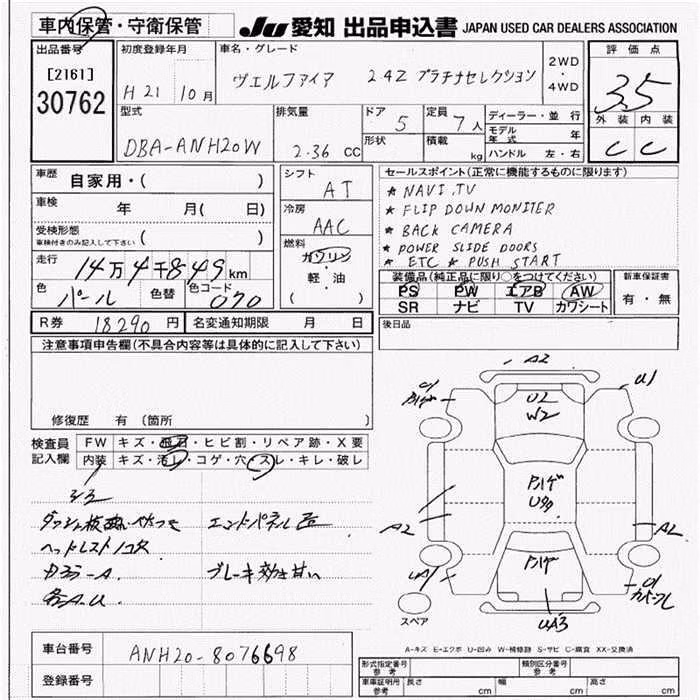 車内保管・守衛保管
JU 愛知 出品申込書 JAPAN USED CAR DEALERS ASSOCIATION
出品番号
[2161]
30762
初度登録年月
H 21 10月
車名・グレード
ヴェルファイア 2.4Z プラチナセレクション
2WD
・
4WD
評価点
3.5
外装 内装
C C
型式
DBA-ANH20W
排気量
2.36 CC
ドア
5
形状
定員
7人
積載
kg
ディーラー・並行
モデル年式 年
ハンドル 左・右
車歴
自家用・( )
車検
年 月( 日)
受検形態
車検付きのみ記入して下さい ( )
走行
14万4千849km
色
パール
色替
色コード
070
R券 18290円
名変通知期限 月 日
シフト
AT
冷房
AAC
燃料
ガソリン
・
軽・油
( )
セールスポイント(正常に機能するものに限ります)
★ NAVI.TV
★ FLIP DOWN MONITER
★ BACK CAMERA
★ POWER SLIDE DOORS
★ ETC ★ PUSH START
装備品(純正品に限り○をつけてください)
PS PW エアB AW
SR ナビ TV カワシート
新車保証書
有・無
後日品
注意事項申告欄(不具合内容等は具体的に記入して下さい)
修復歴 有 〔箇所 〕
検査員記入欄
FW キズ・飛石・ヒビ割・リペア跡・X要
内装 キズ・汚レ・コゲ・穴・スレ・キレ・破レ
シミ
エンドパネル凸
ヘッドレスト
ブレーキ効き甘い
各A.U.
A2
U1
U2
W2
A2
A2
UA3
U1
スペア
A-キズ E-エクボ U-凹み W-補修跡 S-サビ C-腐食 XX-交換済
車台番号
ANH20-8076698
登録番号
形式指定番号
参考
類別区分番号
参考
車庫証明用
参考
長さ cm
幅 cm
高さ cm